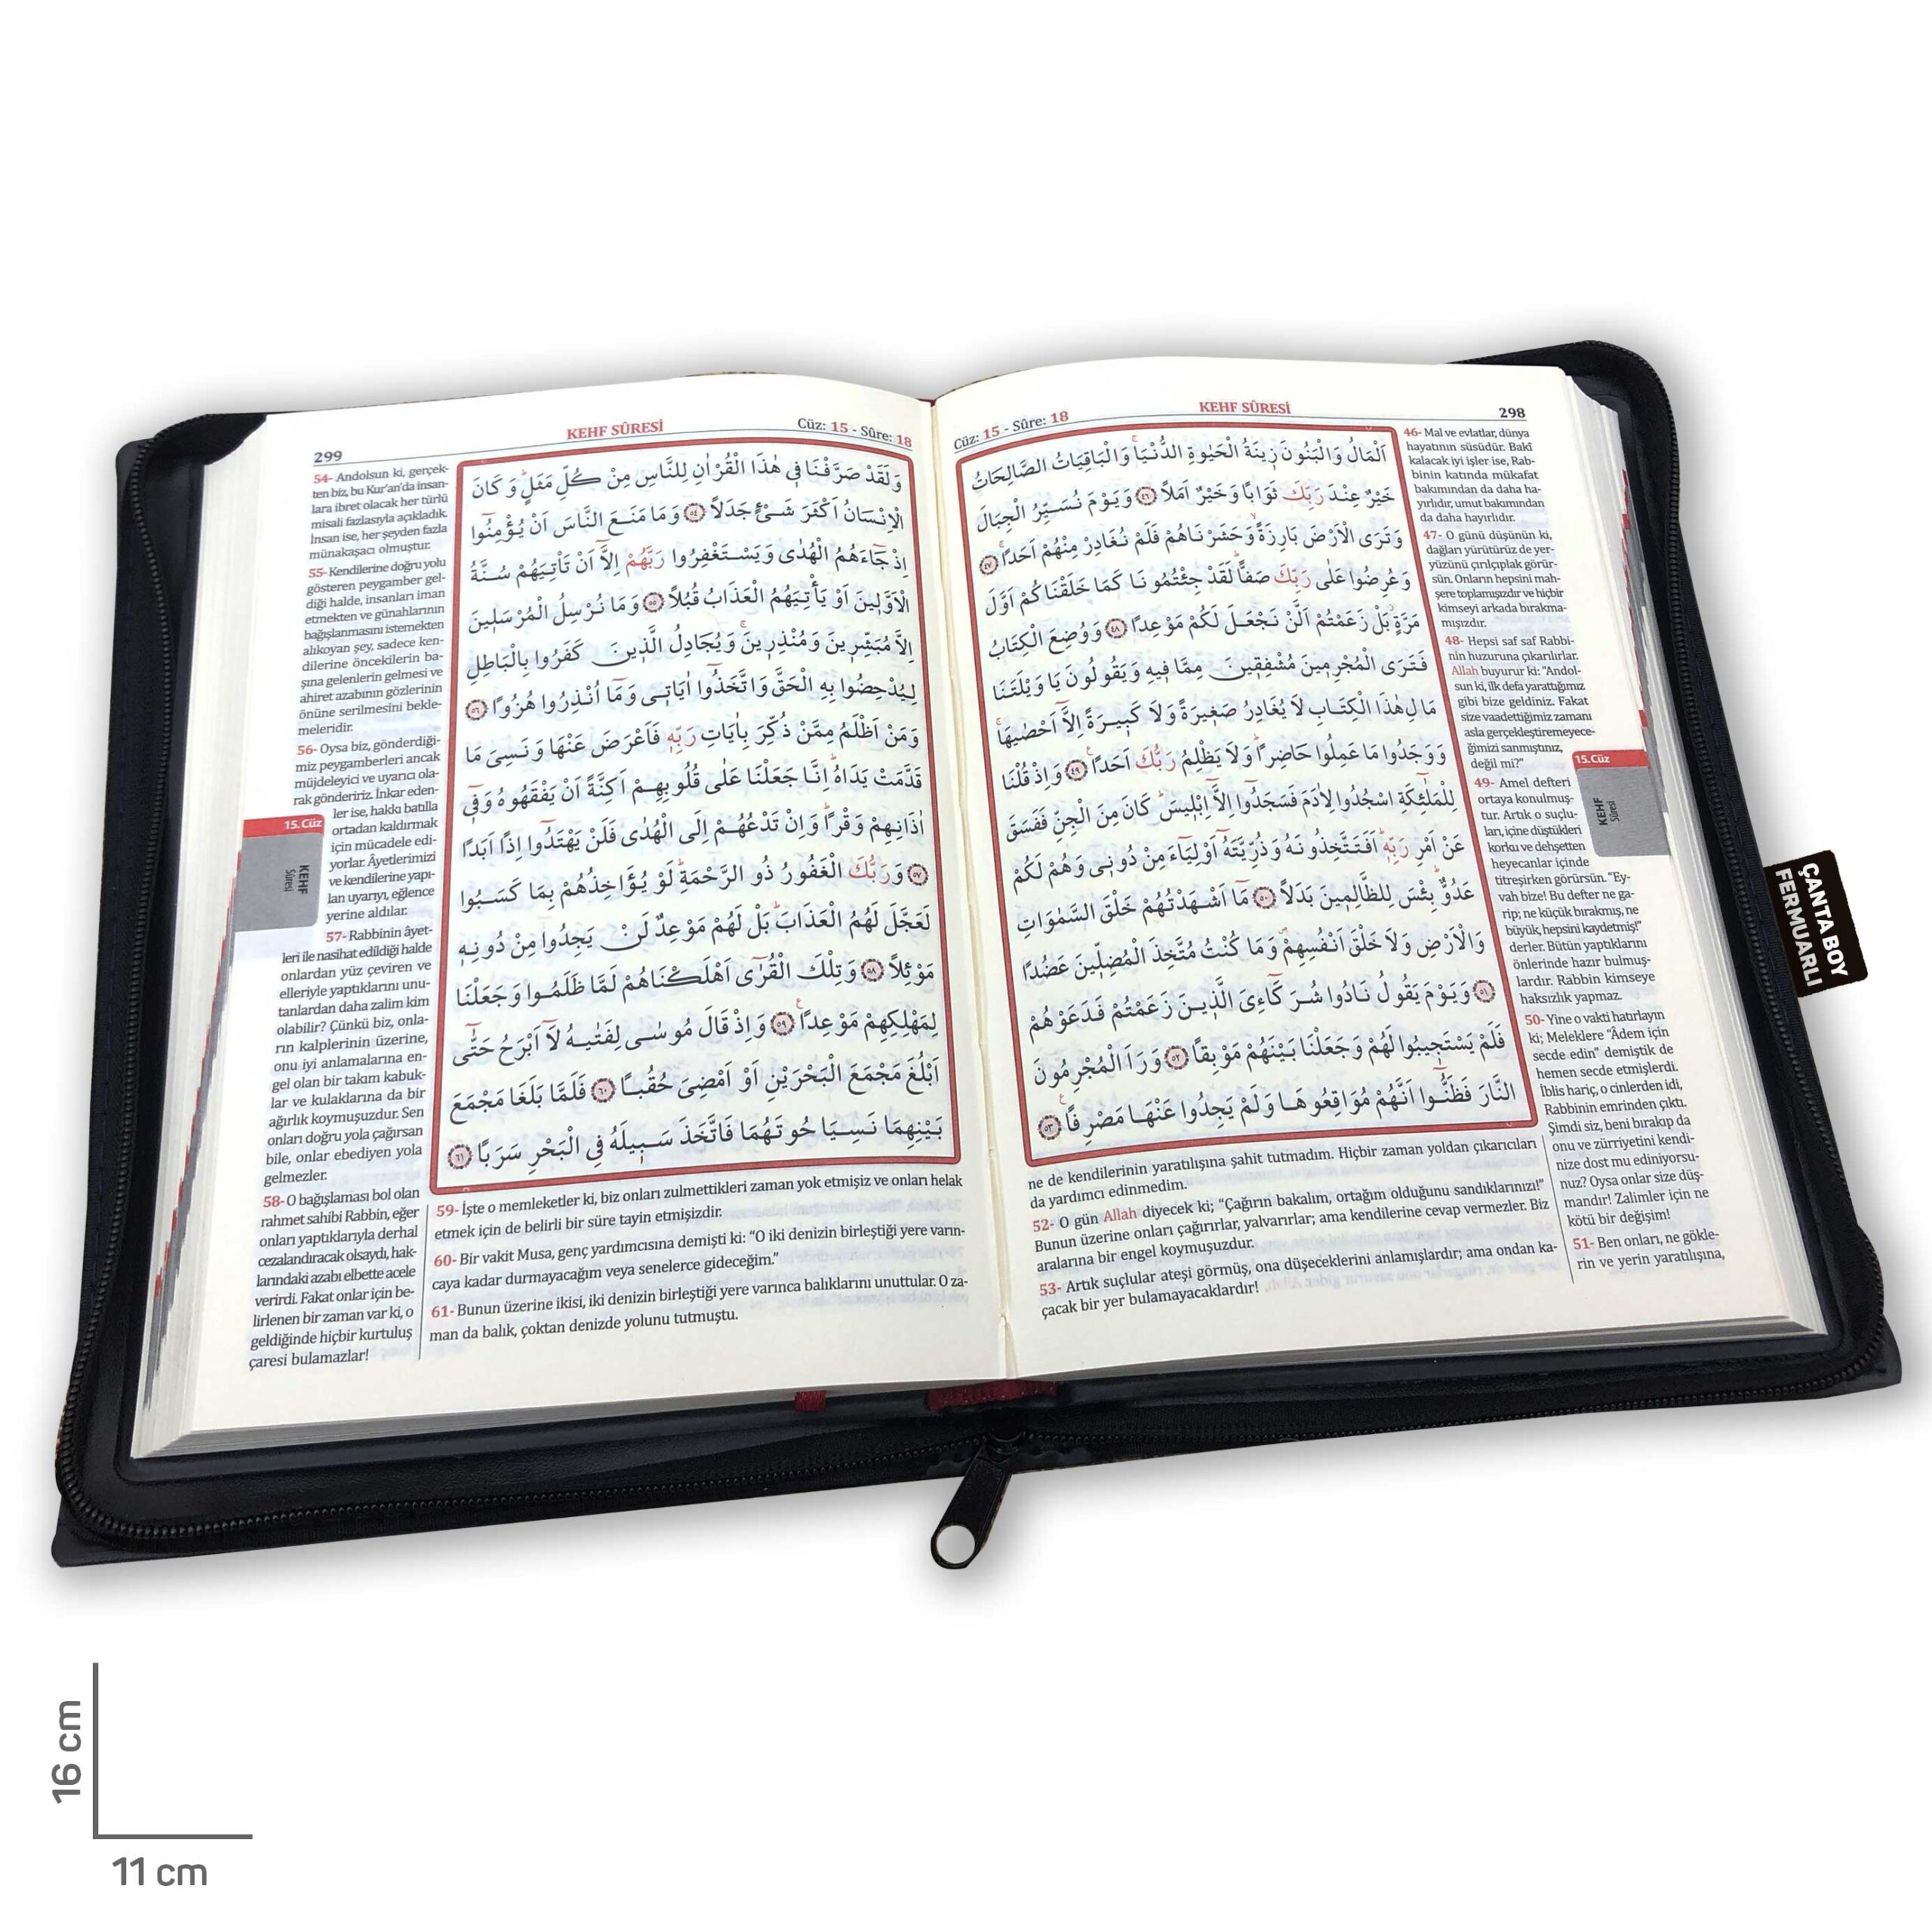 298
KEHF SÛRESİ
Cüz: 15 - Sûre: 18
اَلْمَالُ وَالْبَنُونَ زِينَةُ الْحَيٰوةِ الدُّنْيَاۚ وَالْبَاقِيَاتُ الصَّالِحَاتُ
خَيْرٌ عِنْدَ رَبِّكَ ثَوَابًا وَخَيْرٌ اَمَلًا ﴿٤٦﴾ وَيَوْمَ نُسَيِّرُ الْجِبَالَ
وَتَرَى الْاَرْضَ بَارِزَةًۙ وَحَشَرْنَاهُمْ فَلَمْ نُغَادِرْ مِنْهُمْ اَحَدًاۚ ﴿٤٧﴾
وَعُرِضُوا عَلٰى رَبِّكَ صَفًّاۜ لَقَدْ جِئْتُمُونَا كَمَا خَلَقْنَاكُمْ اَوَّلَ
مَرَّةٍۘ بَلْ زَعَمْتُمْ اَلَّنْ نَجْعَلَ لَكُمْ مَوْعِدًا ﴿٤٨﴾ وَوُضِعَ الْكِتَابُ
فَتَرَى الْمُجْرِمِينَ مُشْفِقِينَ مِمَّا فِيهِ وَيَقُولُونَ يَا وَيْلَتَنَا
مَالِ هٰذَا الْكِتَابِ لَا يُغَادِرُ صَغِيرَةً وَلَا كَبِيرَةً اِلَّٓا اَحْصٰيهَاۚ
وَوَجَدُوا مَا عَمِلُوا حَاضِرًاۜ وَلَا يَظْلِمُ رَبُّكَ اَحَدًا۟ ﴿٤٩﴾ وَاِذْ قُلْنَا
لِلْمَلٰٓئِكَةِ اسْجُدُوا لِاٰدَمَ فَسَجَدُٓوا اِلَّٓا اِبْلِيسَۜ كَانَ مِنَ الْجِنِّ فَفَسَقَ
عَنْ اَمْرِ رَبِّهِۜ اَفَتَتَّخِذُونَهُ وَذُرِّيَّتَهُٓ اَوْلِيَٓاءَ مِنْ دُونِي وَهُمْ لَكُمْ
عَدُوٌّۜ بِئْسَ لِلظَّالِمِينَ بَدَلًا ﴿٥٠﴾ مَٓا اَشْهَدْتُهُمْ خَلْقَ السَّمٰوَاتِ
وَالْاَرْضِ وَلَا خَلْقَ اَنْفُسِهِمْۖ وَمَا كُنْتُ مُتَّخِذَ الْمُضِلِّينَ عَضُدًا
﴿٥١﴾ وَيَوْمَ يَقُولُ نَادُوا شُرَكَٓاءِيَ الَّذِينَ زَعَمْتُمْ فَدَعَوْهُمْ
فَلَمْ يَسْتَجِيبُوا لَهُمْ وَجَعَلْنَا بَيْنَهُمْ مَوْبِقًا ﴿٥٢﴾ وَرَاَ الْمُجْرِمُونَ
النَّارَ فَظَنُّٓوا اَنَّهُمْ مُوَاقِعُوهَا وَلَمْ يَجِدُوا عَنْهَا مَصْرِفًا۟ ﴿٥٣﴾
46- Mal ve evlatlar, dünya
hayatının süsüdür. Bakî
kalacak iyi işler ise, Rab-
binin katında mükafat
bakımından da daha ha-
yırlıdır, umut bakımından
da daha hayırlıdır.
47- O günü düşünün ki,
dağları yürütürüz de yer-
yüzünü çırılçıplak görür-
sün. Onların hepsini mah-
şere toplamışızdır ve hiçbir
kimseyi arkada bırakma-
mışızdır.
48- Hepsi saf saf Rabbi-
nin huzuruna çıkarılırlar.
Allah buyurur ki: "Andol-
sun ki, ilk defa yarattığımız
gibi bize geldiniz. Fakat
size vaadettiğimiz zamanı
asla gerçekleştiremeyece-
ğimizi sanmıştınız,
değil mi?"
49- Amel defteri
ortaya konulmuş-
tur. Artık o suçlu-
ları, içine düştükleri
korku ve dehşetten
heyecanlar içinde
titreşirken görürsün. "Ey-
vah bize! Bu defter ne ga-
rip; ne küçük bırakmış, ne
büyük, hepsini kaydetmiş!"
derler. Bütün yaptıklarını
önlerinde hazır bulmuş-
lardır. Rabbin kimseye
haksızlık yapmaz.
50- Yine o vakti hatırlayın
ki; Meleklere "Âdem için
secde edin" demiştik de
hemen secde etmişlerdi.
İblis hariç, o cinlerden idi,
Rabbinin emrinden çıktı.
Şimdi siz, beni bırakıp da
onu ve zürriyetini kendi-
nize dost mu ediniyorsu-
nuz? Oysa onlar size düş-
mandır! Zalimler için ne
kötü bir değişim!
51- Ben onları, ne gökle-
rin ve yerin yaratılışına,
ne de kendilerinin yaratılışına şahit tutmadım. Hiçbir zaman yoldan çıkarıcıları
da yardımcı edinmedim.
52- O gün Allah diyecek ki; "Çağırın bakalım, ortağım olduğunu sandıklarınızı!"
Bunun üzerine onları çağırırlar, yalvarırlar; ama kendilerine cevap vermezler. Biz
aralarına bir engel koymuşuzdur.
53- Artık suçlular ateşi görmüş, ona düşeceklerini anlamışlardır; ama ondan ka-
çacak bir yer bulamayacaklardır!
15.Cüz
KEHF
Sûresi
ÇANTA BOY
FERMUARLI
299
KEHF SÛRESİ
Cüz: 15 - Sûre: 18
وَلَقَدْ صَرَّفْنَا فِي هٰذَا الْقُرْاٰنِ لِلنَّاسِ مِنْ كُلِّ مَثَلٍۜ وَكَانَ
الْاِنْسَانُ اَكْثَرَ شَيْءٍ جَدَلًا ﴿٥٤﴾ وَمَا مَنَعَ النَّاسَ اَنْ يُؤْمِنُٓوا
اِذْ جَٓاءَهُمُ الْهُدٰى وَيَسْتَغْفِرُوا رَبَّهُمْ اِلَّٓا اَنْ تَأْتِيَهُمْ سُنَّةُ
الْاَوَّلِينَ اَوْ يَأْتِيَهُمُ الْعَذَابُ قُبُلًا ﴿٥٥﴾ وَمَا نُرْسِلُ الْمُرْسَلِينَ
اِلَّا مُبَشِّرِينَ وَمُنْذِرِينَۚ وَيُجَادِلُ الَّذِينَ كَفَرُوا بِالْبَاطِلِ
لِيُدْحِضُوا بِهِ الْحَقَّ وَاتَّخَذُٓوا اٰيَاتِي وَمَٓا اُنْذِرُوا هُزُوًا ﴿٥٦﴾
وَمَنْ اَظْلَمُ مِمَّنْ ذُكِّرَ بِاٰيَاتِ رَبِّهِ فَاَعْرَضَ عَنْهَا وَنَسِيَ مَا
قَدَّمَتْ يَدَاهُۜ اِنَّا جَعَلْنَا عَلٰى قُلُوبِهِمْ اَكِنَّةً اَنْ يَفْقَهُوهُ وَفِٓي
اٰذَانِهِمْ وَقْرًاۜ وَاِنْ تَدْعُهُمْ اِلَى الْهُدٰى فَلَنْ يَهْتَدُٓوا اِذًا اَبَدًا
﴿٥٧﴾ وَرَبُّكَ الْغَفُورُ ذُو الرَّحْمَةِۜ لَوْ يُؤَاخِذُهُمْ بِمَا كَسَبُوا
لَعَجَّلَ لَهُمُ الْعَذَابَۜ بَلْ لَهُمْ مَوْعِدٌ لَنْ يَجِدُوا مِنْ دُونِهِ
مَوْئِلًا ﴿٥٨﴾ وَتِلْكَ الْقُرٰٓى اَهْلَكْنَاهُمْ لَمَّا ظَلَمُوا وَجَعَلْنَا
لِمَهْلِكِهِمْ مَوْعِدًا۟ ﴿٥٩﴾ وَاِذْ قَالَ مُوسٰى لِفَتٰيهُ لَٓا اَبْرَحُ حَتّٰٓى
اَبْلُغَ مَجْمَعَ الْبَحْرَيْنِ اَوْ اَمْضِيَ حُقُبًا ﴿٦٠﴾ فَلَمَّا بَلَغَا مَجْمَعَ
بَيْنِهِمَا نَسِيَا حُوتَهُمَا فَاتَّخَذَ سَبِيلَهُ فِي الْبَحْرِ سَرَبًا ﴿٦١﴾
54- Andolsun ki, gerçek-
ten biz, bu Kur'an'da insan-
lara ibret olacak her türlü
misali fazlasıyla açıkladık.
İnsan ise, her şeyden fazla
münakaşacı olmuştur.
55- Kendilerine doğru yolu
gösteren peygamber gel-
diği halde, insanları iman
etmekten ve günahlarının
bağışlanmasını istemekten
alıkoyan şey, sadece ken-
dilerine öncekilerin ba-
şına gelenlerin gelmesi ve
ahiret azabının gözlerinin
önüne serilmesini bekle-
meleridir.
56- Oysa biz, gönderdiği-
miz peygamberleri ancak
müjdeleyici ve uyarıcı ola-
rak göndeririz. İnkar eden-
ler ise, hakkı batılla
ortadan kaldırmak
için mücadele edi-
yorlar. Âyetlerimizi
ve kendilerine yapı-
lan uyarıyı, eğlence
yerine aldılar.
57- Rabbinin âyet-
leri ile nasihat edildiği halde
onlardan yüz çeviren ve
elleriyle yaptıklarını unu-
tanlardan daha zalim kim
olabilir? Çünkü biz, onla-
rın kalplerinin üzerine,
onu iyi anlamalarına en-
gel olan bir takım kabuk-
lar ve kulaklarına da bir
ağırlık koymuşuzdur. Sen
onları doğru yola çağırsan
bile, onlar ebediyen yola
gelmezler.
58- O bağışlaması bol olan
rahmet sahibi Rabbin, eğer
onları yaptıklarıyla derhal
cezalandıracak olsaydı, hak-
larındaki azabı elbette acele
verirdi. Fakat onlar için be-
lirlenen bir zaman var ki, o
geldiğinde hiçbir kurtuluş
çaresi bulamazlar!
59- İşte o memleketler ki, biz onları zulmettikleri zaman yok etmişiz ve onları helak
etmek için de belirli bir süre tayin etmişizdir.
60- Bir vakit Musa, genç yardımcısına demişti ki: "O iki denizin birleştiği yere varın-
caya kadar durmayacağım veya senelerce gideceğim."
61- Bunun üzerine ikisi, iki denizin birleştiği yere varınca balıklarını unuttular. O za-
man da balık, çoktan denizde yolunu tutmuştu.
15.Cüz
KEHF
Sûresi
16 cm
11 cm